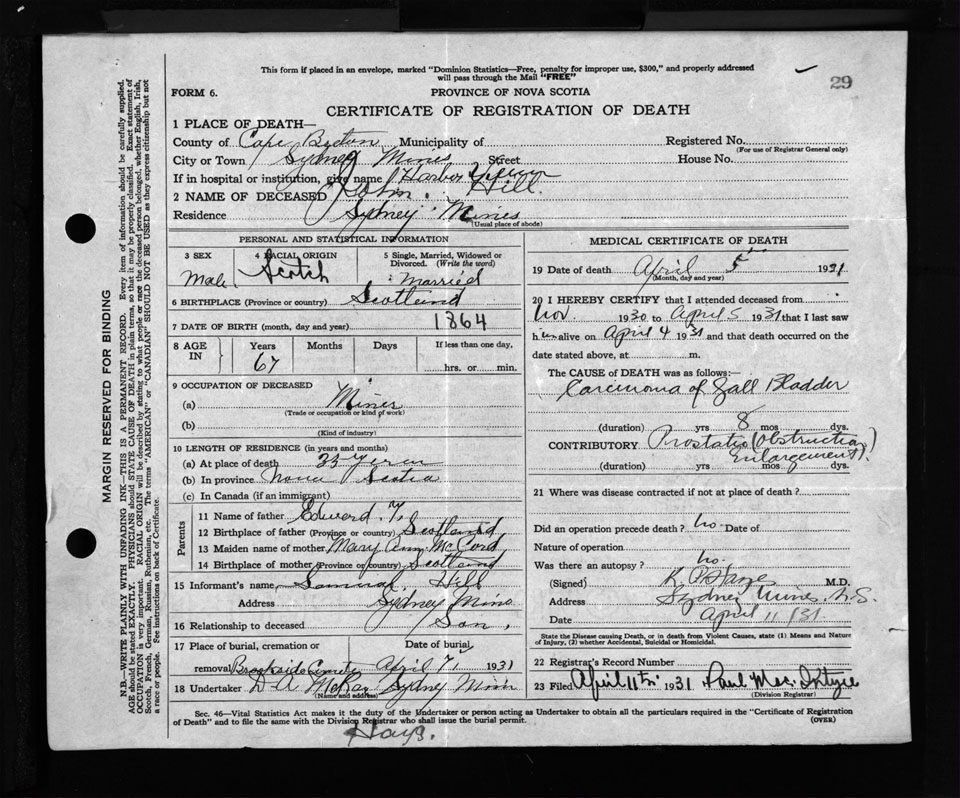 This form if placed in an envelope, marked "Dominion Statistics—Free, penalty for improper use, $300," and properly addressed
will pass through the Mail "FREE"
29
FORM 6.
PROVINCE OF NOVA SCOTIA
CERTIFICATE OF REGISTRATION OF DEATH
1 PLACE OF DEATH—
County of Cape Breton Municipality of Registered No.
(For use of Registrar General only)
City or Town Sydney Mines Street House No.
If in hospital or institution, give name Harbor View
2 NAME OF DECEASED John Hill.
Residence Sydney Mines
(Usual place of abode)
PERSONAL AND STATISTICAL INFORMATION
3 SEX
Male
4 RACIAL ORIGIN
Scotch
5 Single, Married, Widowed or
Divorced. (Write the word)
Married
6 BIRTHPLACE (Province or country) Scotland
7 DATE OF BIRTH (month, day and year) 1864
8 AGE IN
Years Months Days If less than one day,
67 hrs. or min.
9 OCCUPATION OF DECEASED
(a) Miner
(Trade or occupation or kind of work)
(b)
(Kind of industry)
10 LENGTH OF RESIDENCE (in years and months)
(a) At place of death
(b) In province Nova Scotia
(c) In Canada (if an immigrant)
Parents
11 Name of father Edward
12 Birthplace of father (Province or country) Scotland
13 Maiden name of mother Mary Ann McCord
14 Birthplace of mother (Province or country) Scotland
15 Informant's name Samuel Hill
Address Sydney Mines
16 Relationship to deceased Son.
17 Place of burial, cremation or Date of burial,
removal Brookside April 7, 1931
18 Undertaker D A McRae Sydney Mines
(Name and address)
MEDICAL CERTIFICATE OF DEATH
19 Date of death April 5 1931
(Month, day and year)
20 I HEREBY CERTIFY that I attended deceased from
Nov. 1930 to April 5 1931 that I last saw
him alive on April 4 1931 and that death occurred on the
date stated above, at m.
The CAUSE of DEATH was as follows:—
Carcinoma of Gall Bladder
(duration) yrs 8 mos dys.
CONTRIBUTORY Prostatic (Obstruction
Enlargement)
(duration) yrs mos dys.
21 Where was disease contracted if not at place of death?
Did an operation precede death? no. Date of
Nature of operation
Was there an autopsy? no.
(Signed) M.D.
Address Sydney Mines N.S.
Date April 11/31
State the Disease causing Death, or in death from Violent Causes, state (1) Means and Nature
of Injury, (2) whether Accidental, Suicidal or Homicidal.
22 Registrar's Record Number
23 Filed April 11th 1931
(Division Registrar)
Sec. 46—Vital Statistics Act makes it the duty of the Undertaker or person acting as Undertaker to obtain all the particulars required in the "Certificate of Registration
of Death" and to file the same with the Division Registrar who shall issue the burial permit. (OVER)
Hays.
MARGIN RESERVED FOR BINDING
N.B.—WRITE PLAINLY WITH UNFADING INK—THIS IS A PERMANENT RECORD. Every item of information should be carefully supplied.
AGE should be stated EXACTLY. PHYSICIANS should STATE CAUSE OF DEATH in plain terms, so that it may be properly classified. Exact statement of
OCCUPATION is very important. RACIAL ORIGIN will be described by stating to what people or race the deceased person belonged, whether English, Irish,
Scotch, French, German, Russian, Ruthenian, etc. The terms "AMERICAN" or "CANADIAN" SHOULD NOT BE USED as they express citizenship but not
a race or people. See instructions on back of Certificate.